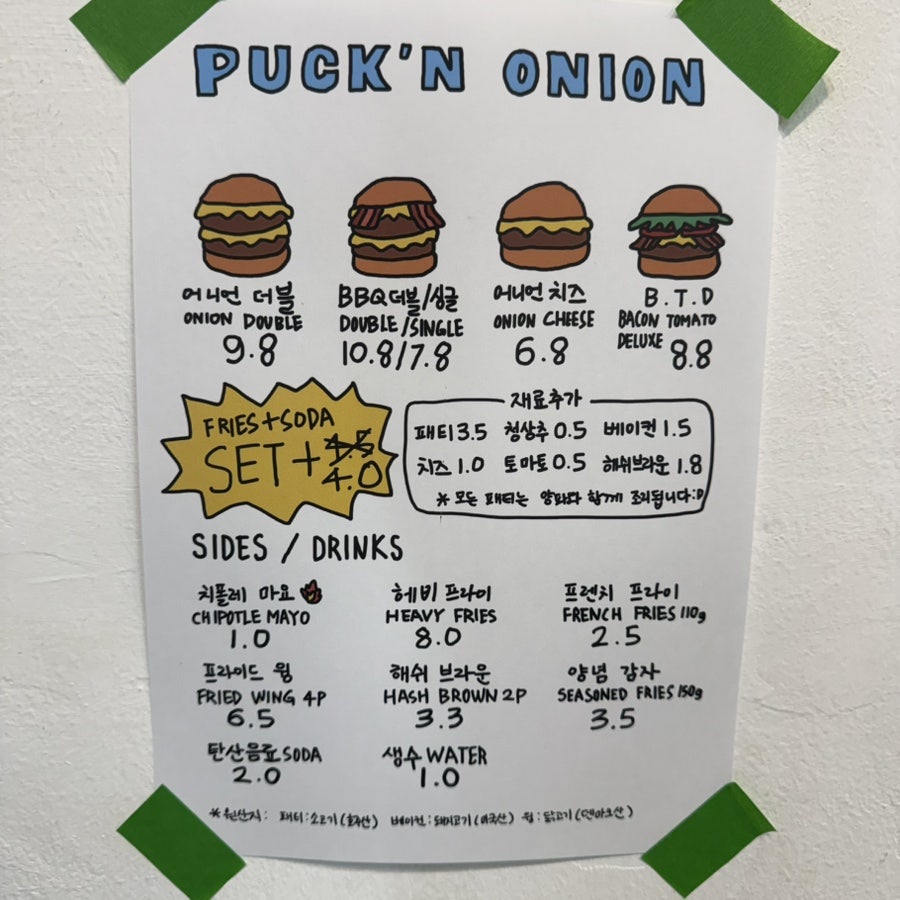 PUCK'N ONION
어니언 더블
ONION DOUBLE
9.8
BBQ더블/싱글
DOUBLE/SINGLE
10.8/7.8
어니언 치즈
ONION CHEESE
6.8
B.T.D
BACON TOMATO
DELUXE 8.8
FRIES+SODA
SET+4.5
4.0
재료추가
패티 3.5 청상추 0.5 베이컨 1.5
치즈 1.0 토마토 0.5 해쉬브라운 1.8
*모든 패티는 양파와 함께 조리됩니다:D
SIDES / DRINKS
치폴레 마요
CHIPOTLE MAYO
1.0
헤비 프라이
HEAVY FRIES
8.0
프렌치 프라이
FRENCH FRIES 110g
2.5
프라이드 윙
FRIED WING 4P
6.5
해쉬 브라운
HASH BROWN 2P
3.3
양념 감자
SEASONED FRIES 150g
3.5
탄산음료 SODA
2.0
생수 WATER
1.0
*원산지: 패티:소고기(호주산) 베이컨:돼지고기(미국산) 윙:닭고기(덴마크산)